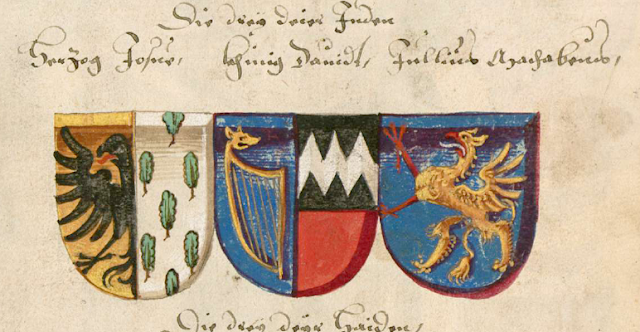 Die drey deier Juden
Herzog Josue, Khinig Dauidt, Jullius Machabeus,
Die drey deyr Haiden,